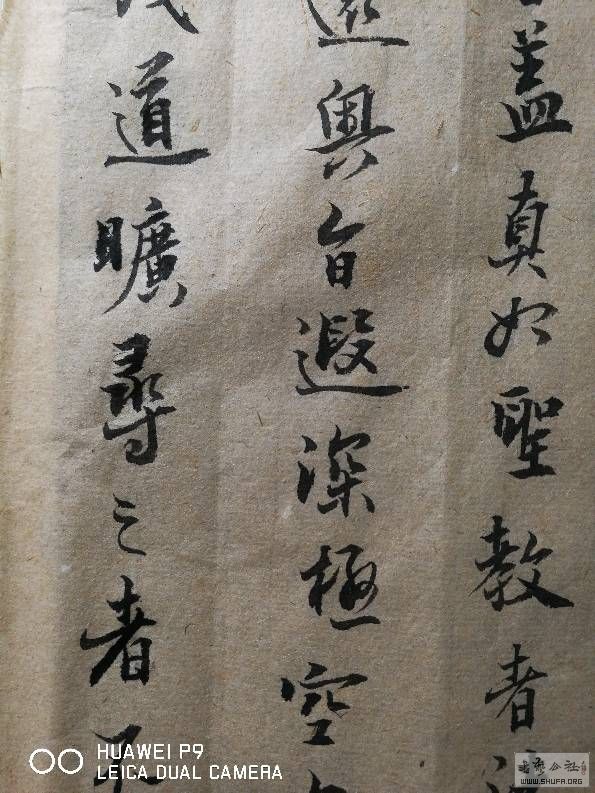 蓋真如聖教者
遠奧旨遐深極空
茂道曠尋之者不
HUAWEI P9
LEICA DUAL CAMERA
WWW.SHUFA.ORG